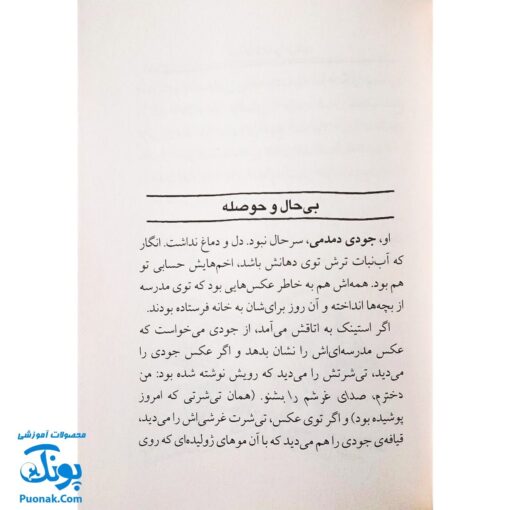 بی‌حال و حوصله
او، جودی دمدمی، سرحال نبود. دل و دماغ نداشت. انگار
که آب‌نبات ترش توی دهانش باشد، اخم‌هایش حسابی تو
هم بود. همه‌اش هم به خاطر عکس‌هایی بود که توی مدرسه
از بچه‌ها انداخته و آن روز برای‌شان به خانه فرستاده بودند.
اگر استینک به اتاقش می‌آمد، از جودی می‌خواست که
عکس مدرسه‌ای‌اش را نشان بدهد و اگر عکس جودی را
می‌دید، تی‌شرتش را می‌دید که رویش نوشته شده بود: من
دخترم، صدای غرشم را بشنو. (همان تی‌شرتی که امروز
پوشیده بود) و اگر توی عکس، تی‌شرت غرشی‌اش را می‌دید،
قیافه‌ی جودی را هم می‌دید که با آن موهای ژولیده‌ای که روی
محصولات آموزشی
پونک
Puonak.Com